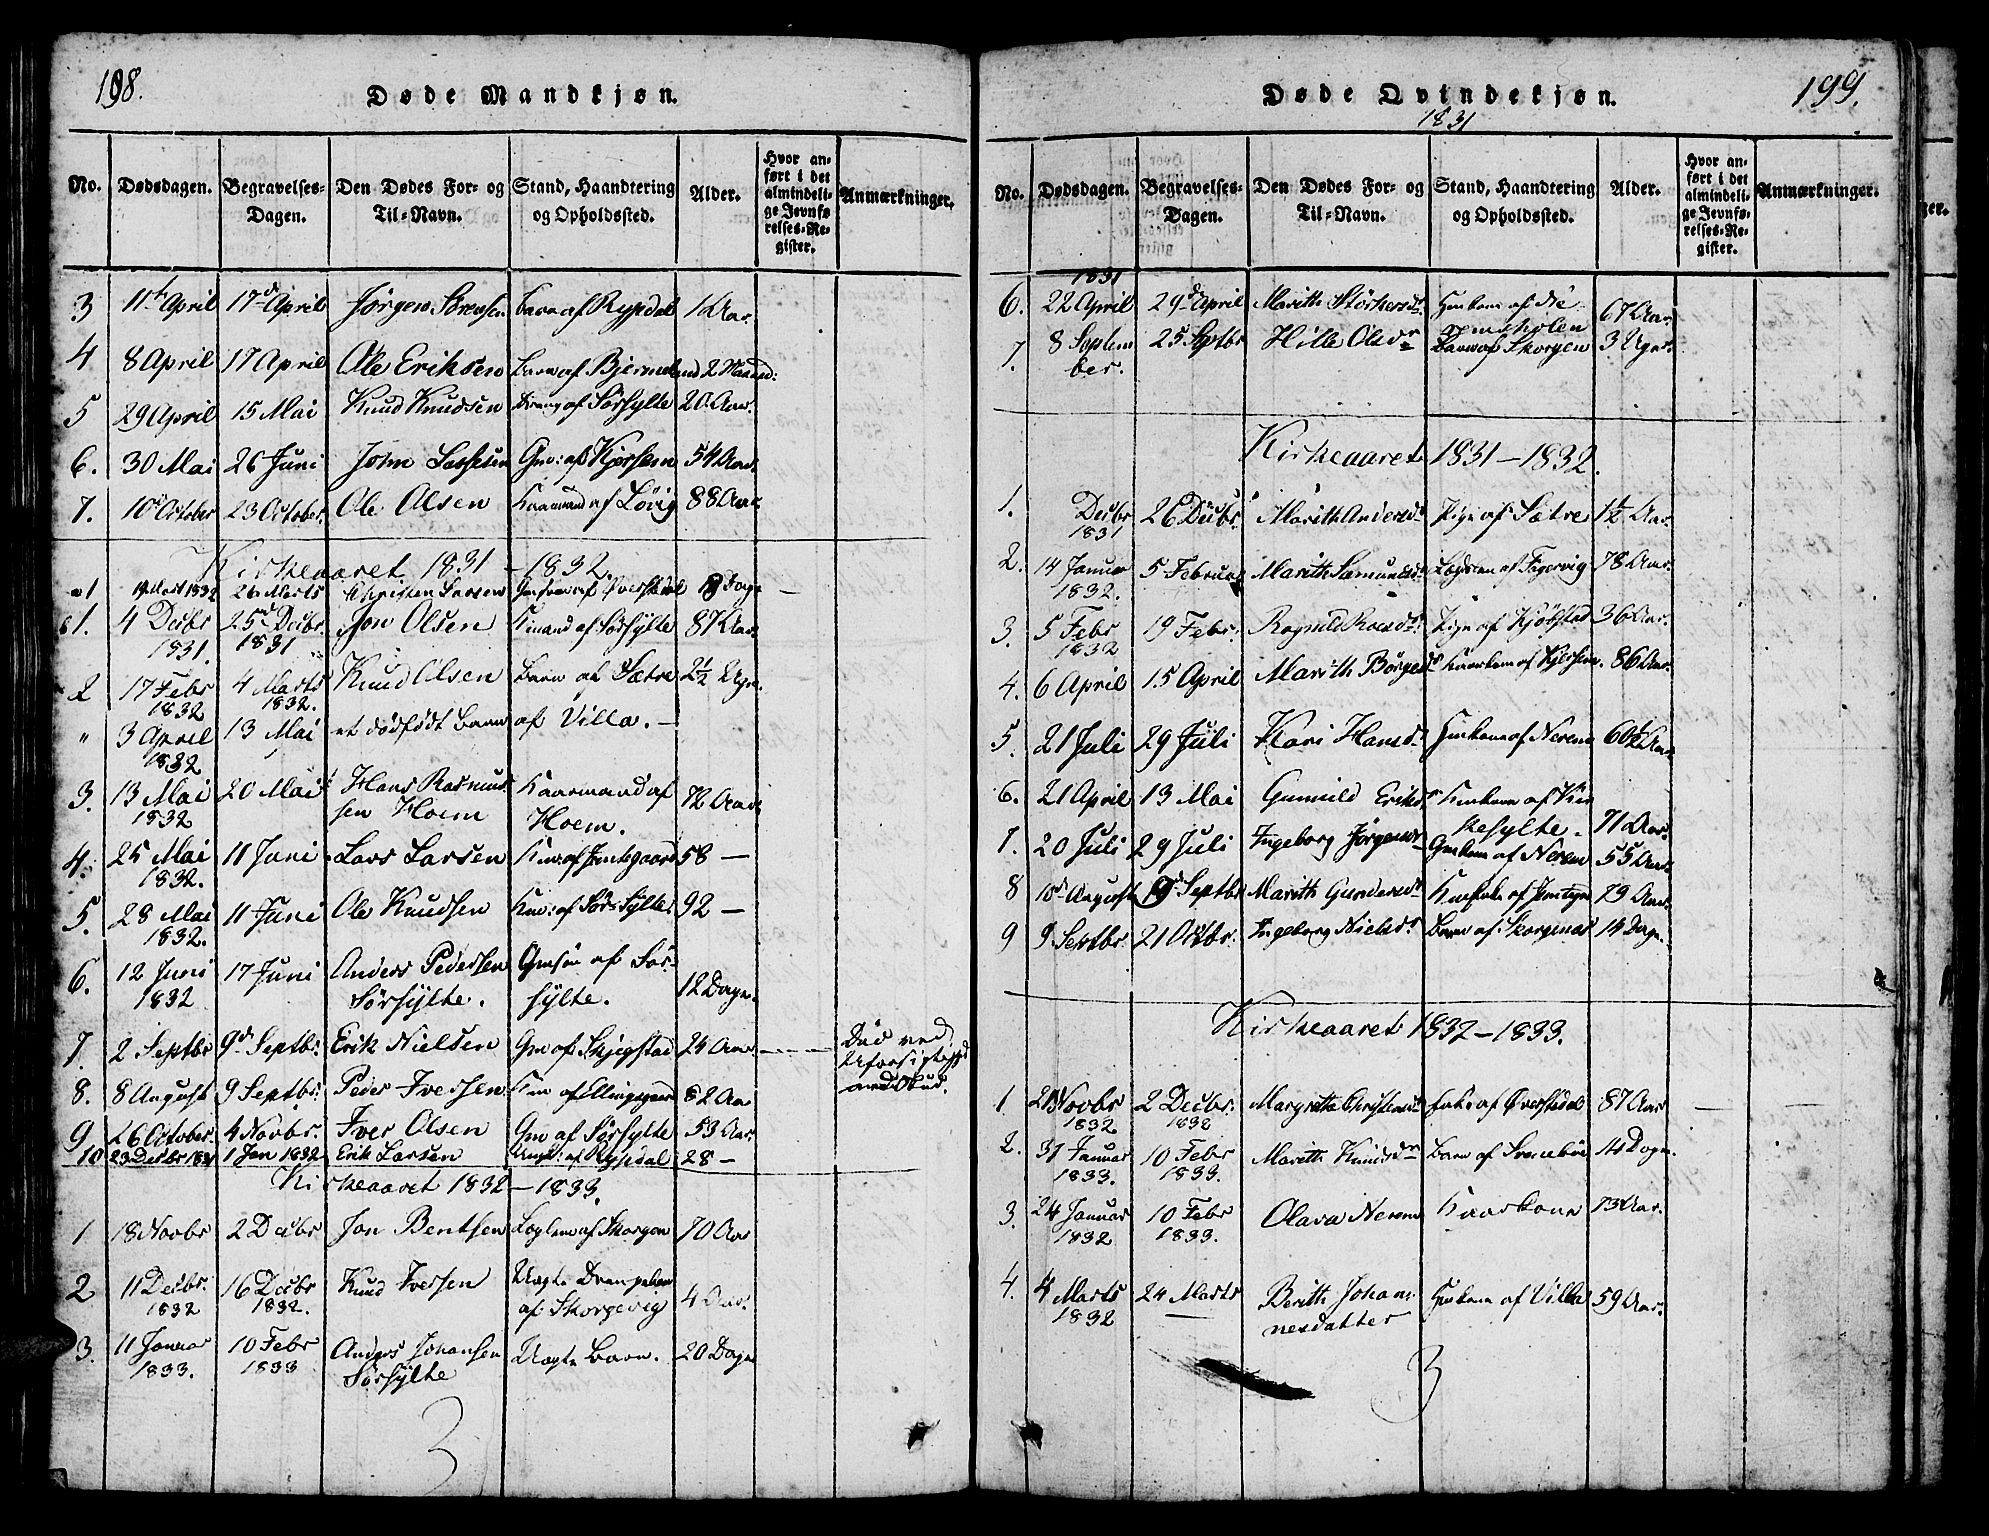 198.
Døde Mandkjøn.
No. Dødsdagen. Begravelses-Dagen. Den Dødes For- og Til-Navn. Stand, Haandtering og Opholdssted. Alder. Hvor anført i det almindelige Jevnførelses-Register. Anmærkninger.
3 11te April 17de April Jørgen Sørensen Barn af Rypdal 1 Aar.
4 8 April 17 April Ole Eriksen Barn af Bjermeland 2 Maaned:
5 29 April 15 Mai Knud Knudsen af Sørsylte 20 Aar.
6. 30 Mai 26 Juni John Lassesen Gm: af Kjersem 54 Aar.
7. 10 October 23 October. Ole Olsen Kaarmand af Løvig 88 Aar
Kirkeaaret 1831 - 1832.
1 19 Mart 1832 26 Marts Christen Larsen af Øverstedal Dage -
1. 4 Decbr 1831. 25de Decbr. 1831 Jon Olsen Kmand af Sørsylte 87 Aar.
2 17 Febr 1832 4 Marts 1832. Knud Olsen Barn af Sætre 2½ Uger.
" 3 April 1832 13 Mai et dødfødt Barn af Villa. -
3. 13 Mai 1832 20 Mai Hans Rasmussen Hoem Kaarmand af Hoem. 72 Aar.
4. 25 Mai 1832. 11 Juni Lars Larsen Kmd af Jemtegaard 58 -
5. 28 Mai 1832. 11 Juni Ole Knudsen Km: af Sør-Sylte 92 -
6. 12 Juni 1832 17 Juni Anders Pedersen Sørsylte. Gmsøn af Sørsylte. 12 Dage.
7. 2 Septbr 9de Septbr. Erik Nielsen Gm af Skjegstad 24 Aar - - - Død ved Uforsigtighed med Skud.
8. 8 August 9 Septbr. Peder Iversen Km af Ellingsgaard 82 Aar
9 26 October. 4 Novbr. Iver Olsen Gm af Sørsylte 53 Aar.
10 23 Decbr 1831 1 Jan 1832 Erik Larsen Ungk: af Rypdal 28 -
Kirkeaaret 1832 - 1833.
1 18 Novbr 2 Decbr Jon Bentsen Loglem af Skorgen 70 Aar
2 11 Decbr. 1832 16 Decbr 1832. Knud Iversen Uægte Drengebarn af Skorgevig 4 Aar.
3. 11 Januar 1833. 10 Febr 1833 Anders Johansen Sørsylte Uægte Barn. 20 Dage
3
199.
Døde Qvindekjøn.
1831
No. Dødsdagen. Begravelses-Dagen. Den Dødes For- og Til-Navn. Stand, Haandtering og Opholdssted. Alder. Hvor anført i det almindelige Jevnførelses-Register. Anmærkninger.
1831
6. 22 April 29de April Marith Størkersdr. af Remmeholen 67 Aar.
7. 8 September. 25 Septbr Hille Olsdr Barn af Skorgen 3 Uger.
Kirkeaaret 1831 - 1832.
1. Decbr 1831 26 Decbr. Marith Andersdr Pige af Sætre 1½ Aar.
2. 14 Januar 1832. 5 Februar Marith Samundsdr Lægdlem af Fagervig 78 Aar.
3. 5 Febr 1832 19 Febr. Ragnild Roesdr. Pige af Kjøbstad 36 Aar.
4. 6 April 15 April Marith Børgesdr Kaarkone af Kjersem. 86 Aar.
5. 21 Juli 29 Juli Kari Hansdr. af Nerem 60½ Aar
6. 21 April 13 Mai Gunnild Eriksdr Kmkone af Kirkesylte. 71 Aar.
7. 20 Juli 29 Juli Ingeborg Jørgensdr Gmkone af Nerem 55 Aar.
8 10de August Septbr Marith Gundersdr af 79 Aar.
9 9 Septbr. 21 Octbr. Ingeborg Nielsdr Barn af Skorgenes 14 Dage.
Kirkeaaret 1832 - 1833.
1 21 Novbr 1832 2 Decbr. 1832 Margrethe Christensdr Enke af Øverstedal 87 Aar - -
2. 31 Januar 1833. 10 Febr 1833. Marith Knudsdr Barn af Svenebøe 14 Dage.
3. 24 Januar 1832 10 Febr 1833. Olava Nerem Kaarkone 73 Aar.
4. 4 Marts 1832 24 Marts Berith Johannesdatter af Villa 59 Aar.
3